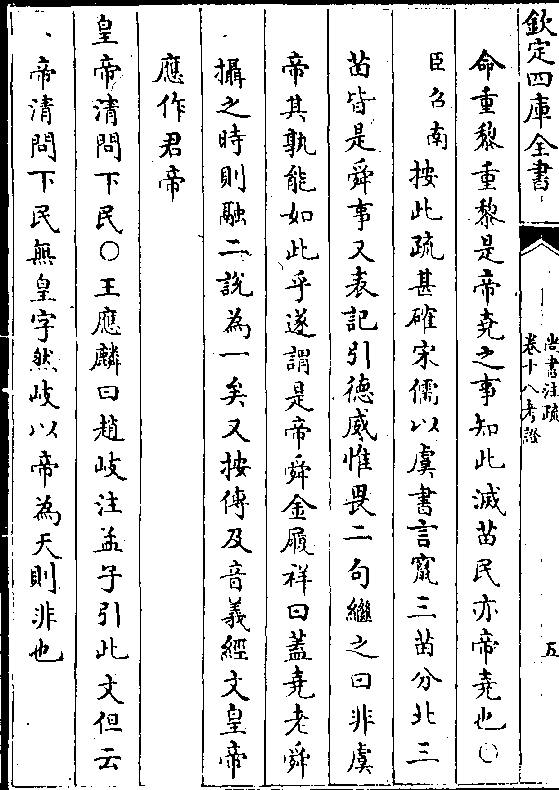 欽定四庫全書
尚書注疏
卷十八考證
五
命重黎重黎是帝堯之事知此滅苗民亦帝堯也○
臣召南按此疏甚確宋儒以虞書言竄三苗分北三
苗皆是舜事又表記引德威惟畏二句繼之曰非虞
帝其孰能如此乎遂謂是帝舜金履祥曰蓋堯老舜
攝之時則融二說為一矣又按傳及音義經文皇帝
應作君帝
皇帝清問下民○王應麟曰趙岐注孟子引此文但云
帝清問下民無皇字然岐以帝為天則非也